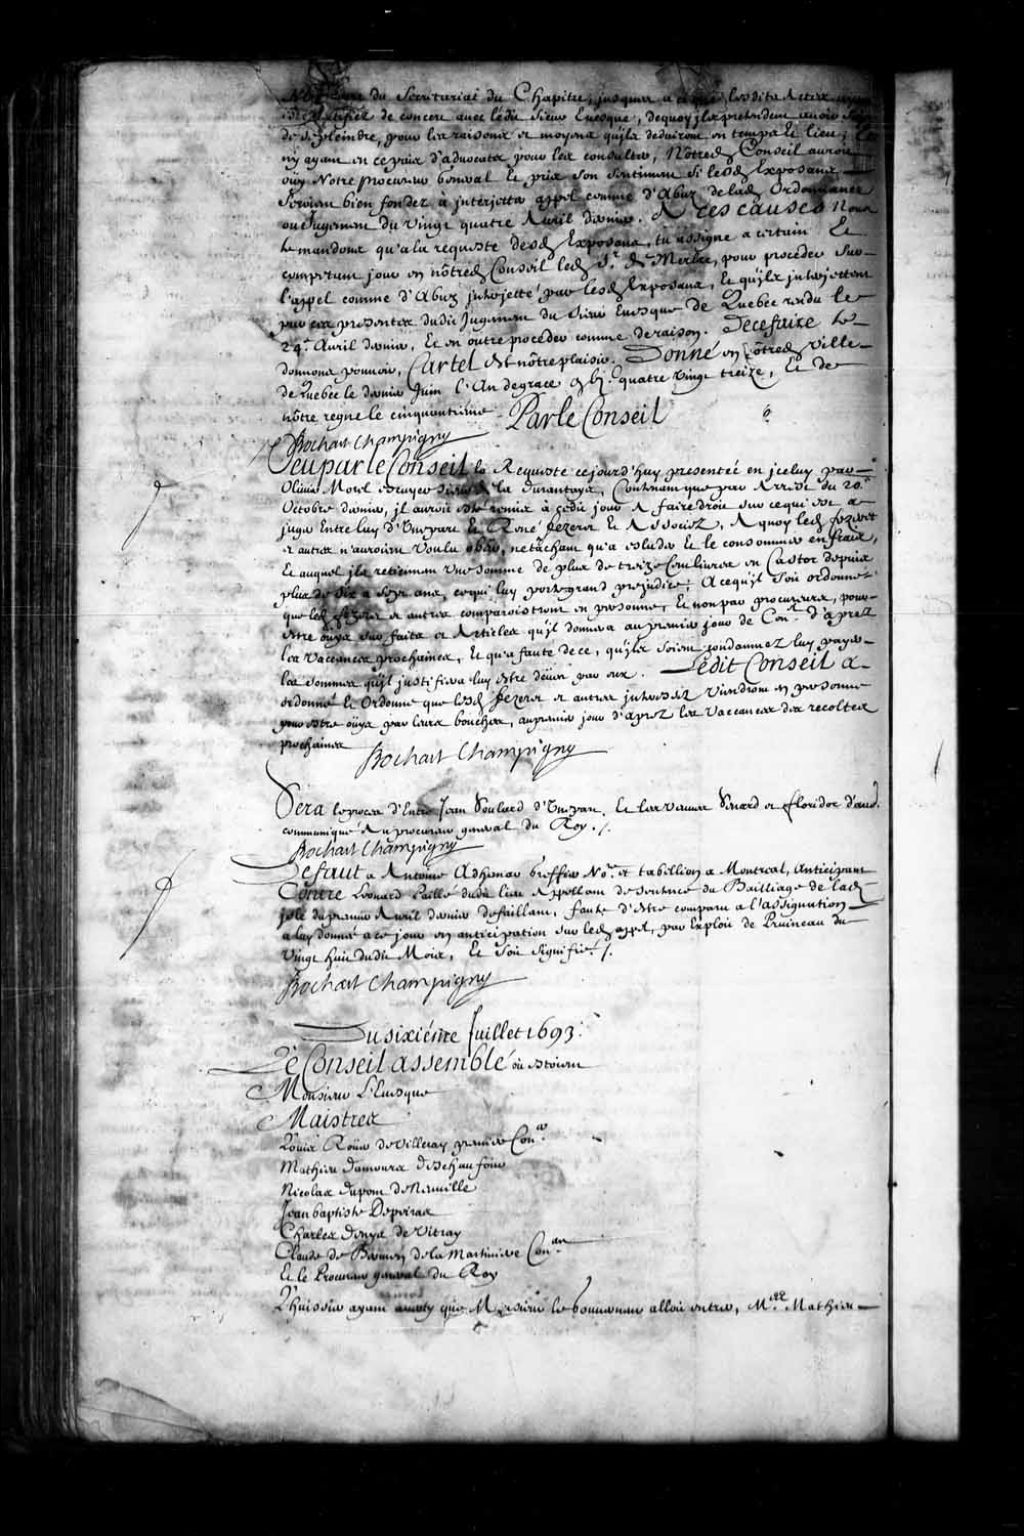 du Secretariat du Chapitre, jusques a ce que lesdits Actes ayent
esté rectifiez de concert avec ledit sieur Evesque, dequoy ils pretendent avoir
de se pleindre, pour les raisons et moyens qu'ils deduiront en temps et lieu,
n'y ayant en ce païs d'advocats pour les consulter, Nôtred. Conseil auroit
oüy Notre Procureur General et pris son sentiment si lesd. Exposans
seroient bien fondez a interjetter appel comme d'Abuz de lad. Ordonnance
ou Jugement du vingt quatre Avril dernier. A ces causes Nous
te mandons qu'a la requeste desd. Exposans, tu assigne a certain Et
competant jour en nôtred. Conseil led. Sr. de Merlac, pour proceder sur
l'appel comme d'Abuz interjetté par lesd. Exposans, et qu'ils interjettent
par ces presentes dudit Jugement du sieur Evesque de Quebec rendu le
24e. Avril dernier, Et en outre proceder comme de raison. De ce faire te
donnons pouvoir, Car tel est nôtre plaisir. Donné en Nôtred. ville
de Quebec le dernier Juin l'An de grace gbj.c quatre vingt treize, Et de
nôtre regne le cinquantieme. Par le Conseil
Bochart Champigny
Veu par le Conseil la Requeste cejourd'huy presentée en iceluy par
Olivier Morel Escuyer sieur de la Durantaye, Contenant que par Arrest du 20e.
Octobre dernier, il auroit esté remis a cedit jour A faire droit sur ce qui est a
juger Entre luy d'Une part Et René Fezeret Et Associez, A quoy led. Fezeret
et autres n'auroient voulu obeir, ne tachant qu'a esluder Et le consommer en fraix,
Et auquel ils retiennent Une somme de plus de treize Cent livres en Castor depuis
plus de six a sept ans, ce qui luy porte grand prejudice; A ce qu'il soit ordonné
que led. Fezeret et autres comparoistront en personne, Et non par procureurs, pour
estre oüys sur faits et Articles qu'il donnera au premier jour de Conl. d'aprez
les vaccances prochaines, Et qu'a faute de ce, qu'ils soient condamnez luy payer
les sommes qu'il justifiera luy estre deües par eux. Ledit Conseil a
ordonné Et Ordonne que lesd. Fezeret et autres interessez viendront en personne
pour estre oüys par leurs bouches, au premier jour d'aprez les vaccances des recoltes
prochaines
Bochart Champigny
Sera le procez d'Entre Jean Soulard d'Une part, Et les veuves Sevard et Floridor d'aut.
communiqué Au procureur general du Roy ./.
Bochart Champigny
Defaut a Antoine Adhemar Greffier Nore. et tabellion a Montreal, Anticipant
Contre Leonard Paillé dudit lieu Appellant de sentence du Bailliage de lad.
isle du premier Avril dernier defaillant, faute d'estre comparu a l'assignation
a luy donnée a ce jour en anticipation sur led. appel, par Exploit de Pruineau du
vingt huit dudit Mois, Et soit signifié ./.
Bochart Champigny
Du sixiéme Juillet 1693.
Le Conseil assemblé où Estoient
Monsieur L'Evesque
Maistres
Louis Roüer de Villeray premier Coner
Mathieu Damours Deschaufour
Nicolas Dupont de Neuville
Jean baptiste Depeiras
Charles Denys de Vitray
Claude de Bermen de la Martiniere Coners
Et le Procureur general du Roy
L'huissier ayant averty que Monsieur le Gouverneur alloit entrer, Mres. Mathieu